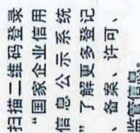 扫描二维码登录
“国家企业信用
信息公示系统
”了解更多登记
、备案、许可、
监管信息。